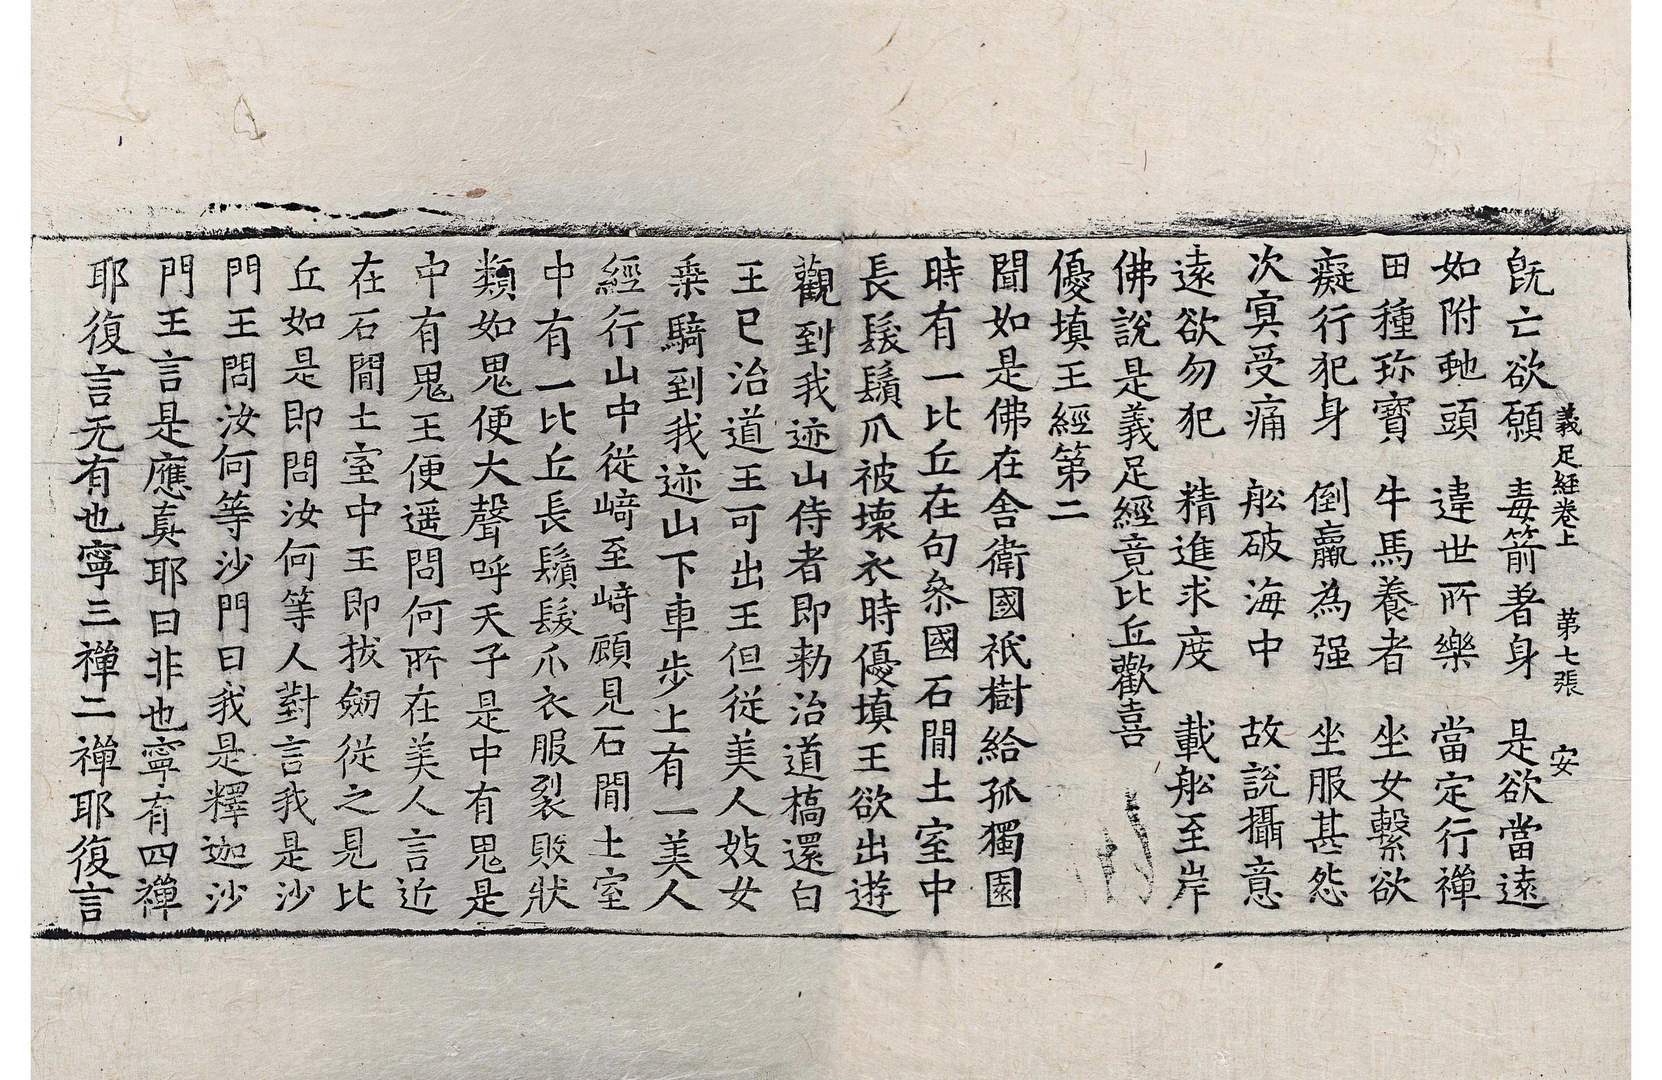 義足經卷上 第七張 安
旣亡欲願 毒箭著身 是欲當遠
如附虵頭 違世所樂 當定行禪
田種珎寶 牛馬養者 坐女繫欲
癡行犯身 倒羸為强 坐服甚怨
次㝠受痛 舩破海中 故說攝意
遠欲勿犯 精進求度 載舩至岸
佛說是義足經竟比丘歡喜
優填王經第二
聞如是佛在舍衛國祇樹給孤獨園
時有一比丘在句叅國石閒土室中
長髮鬚爪被壞衣時優填王欲出遊
觀到我迹山侍者即勑治道橋還白
王已治道王可出王但從美人妓女
乗騎到我迹山下車步上有一美人
經行山中從崎至崎顧見石閒土室
中有一比丘長鬚髮爪衣服裂敗狀
類如鬼便大聲呼天子是中有鬼是
中有鬼王便遥問何所在美人言近
在石閒土室中王即拔劒從之見比
丘如是即問汝何等人對言我是沙
門王問汝何等沙門曰我是釋迦沙
門王言是應真耶曰非也寧有四禪
耶復言无有也寧三禪二禪耶復言